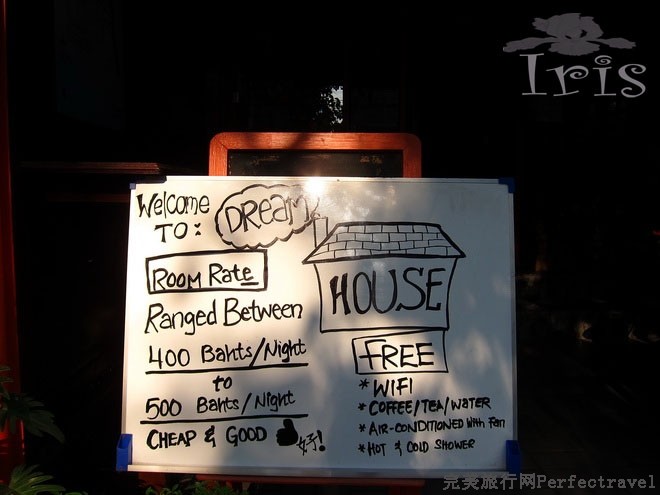 Iris
Welcome
TO:
DREAM
HOUSE
ROOM Rate
Ranged Between
400 Bahts/Night
to
500 Bahts/Night
CHEAP & GOOD 好!
FREE
* WIFI
* COFFEE/TEA/WATER
* AIR-CONDITIONED With Fan
* HOT & COLD SHOWER
完美旅行网Perfectravel